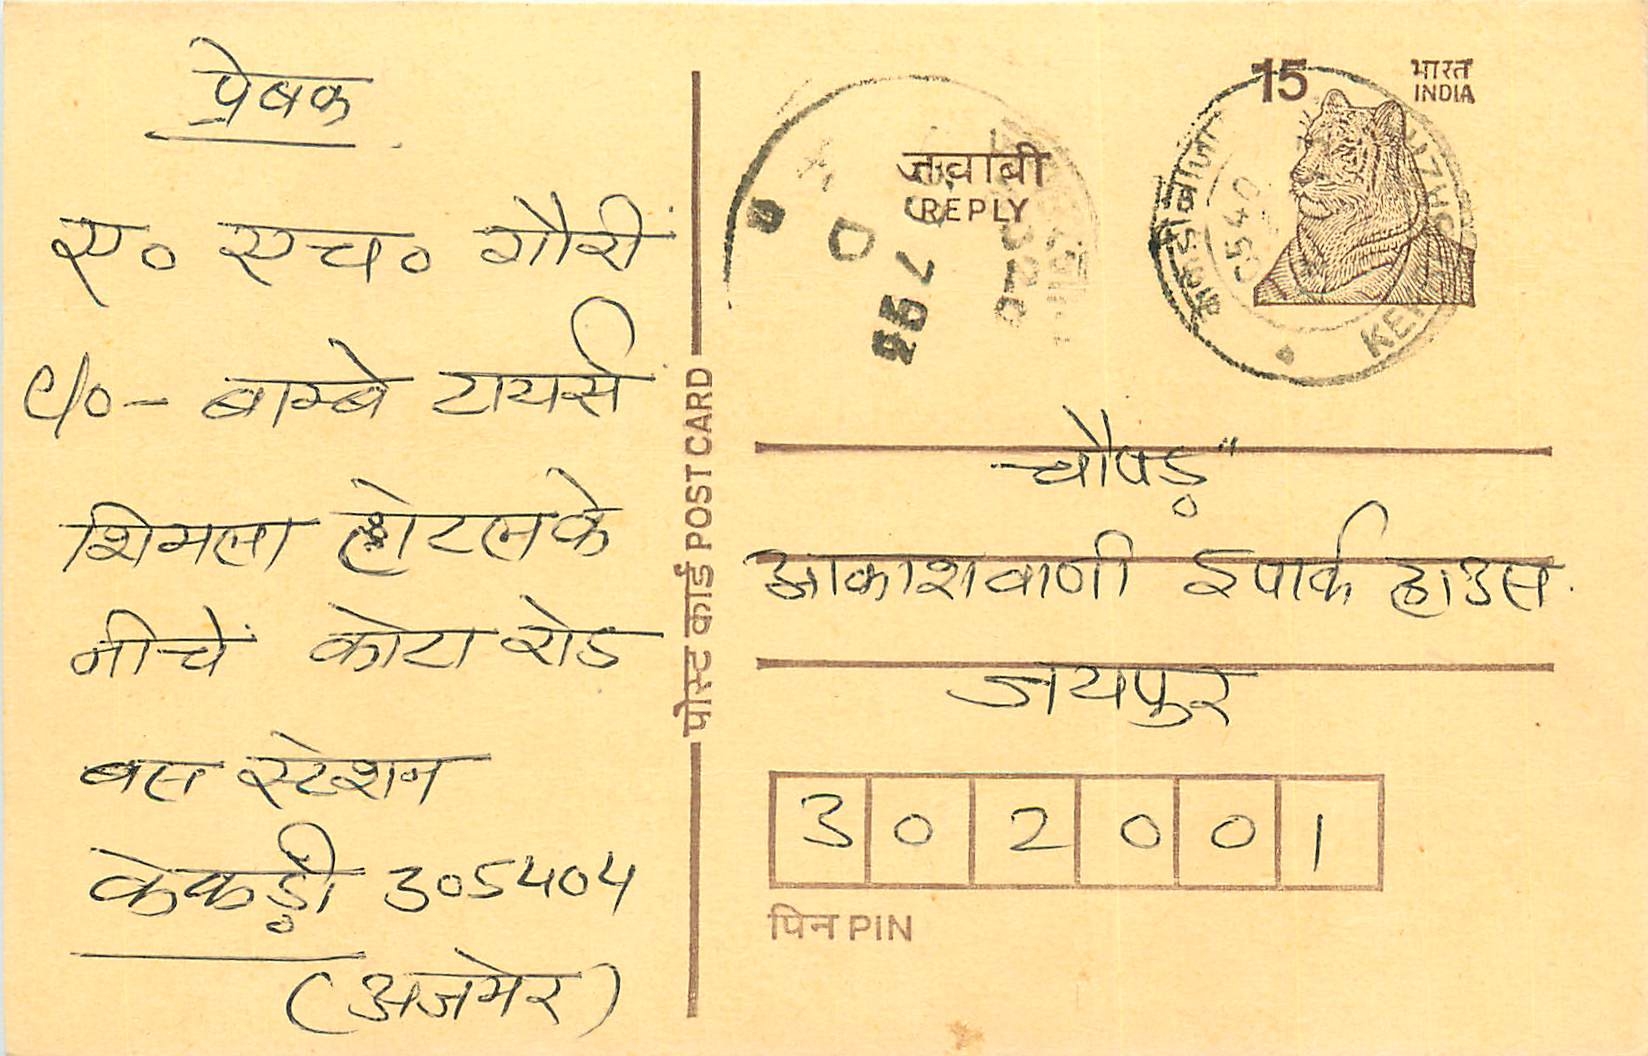 प्रेषक
एo एचo गौरी
C/o- बाम्बे टायर्स
शिमला होटल के
नीचे कोटा रोड
बस स्टेशन
केकड़ी 305404
(अजमेर)
पोस्ट कार्ड POST CARD
जवाबी
REPLY
15
भारत
INDIA
चौपड़"
आकाशवाणी इपार्क हाउस.
जयपुर
302001
पिन PIN